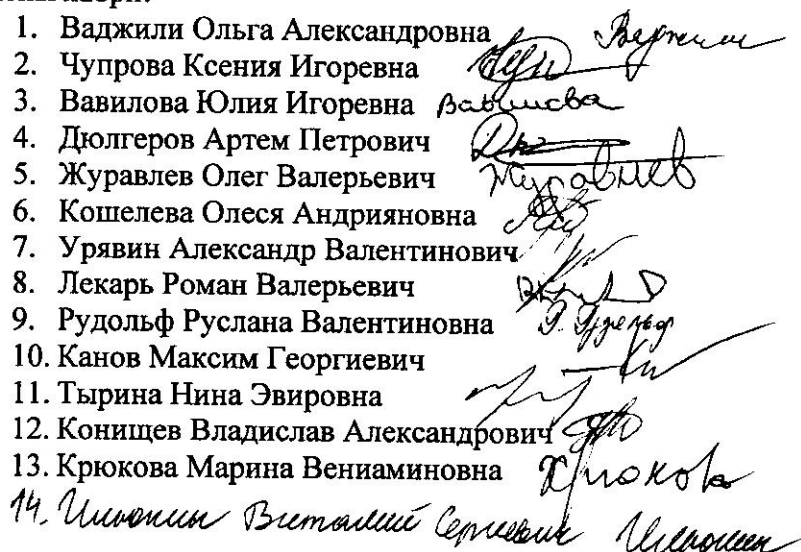 1. Ваджили Ольга Александровна Ваджили
2. Чупрова Ксения Игоревна
3. Вавилова Юлия Игоревна Вавилова
4. Дюлгеров Артем Петрович
5. Журавлев Олег Валерьевич Журавлев
6. Кошелева Олеся Андрияновна
7. Урявин Александр Валентинович
8. Лекарь Роман Валерьевич
9. Рудольф Руслана Валентиновна Р. Рудольф
10. Канов Максим Георгиевич
11. Тырина Нина Эвировна
12. Конищев Владислав Александрович
13. Крюкова Марина Вениаминовна Крюкова
14. Виталий Сергеевич